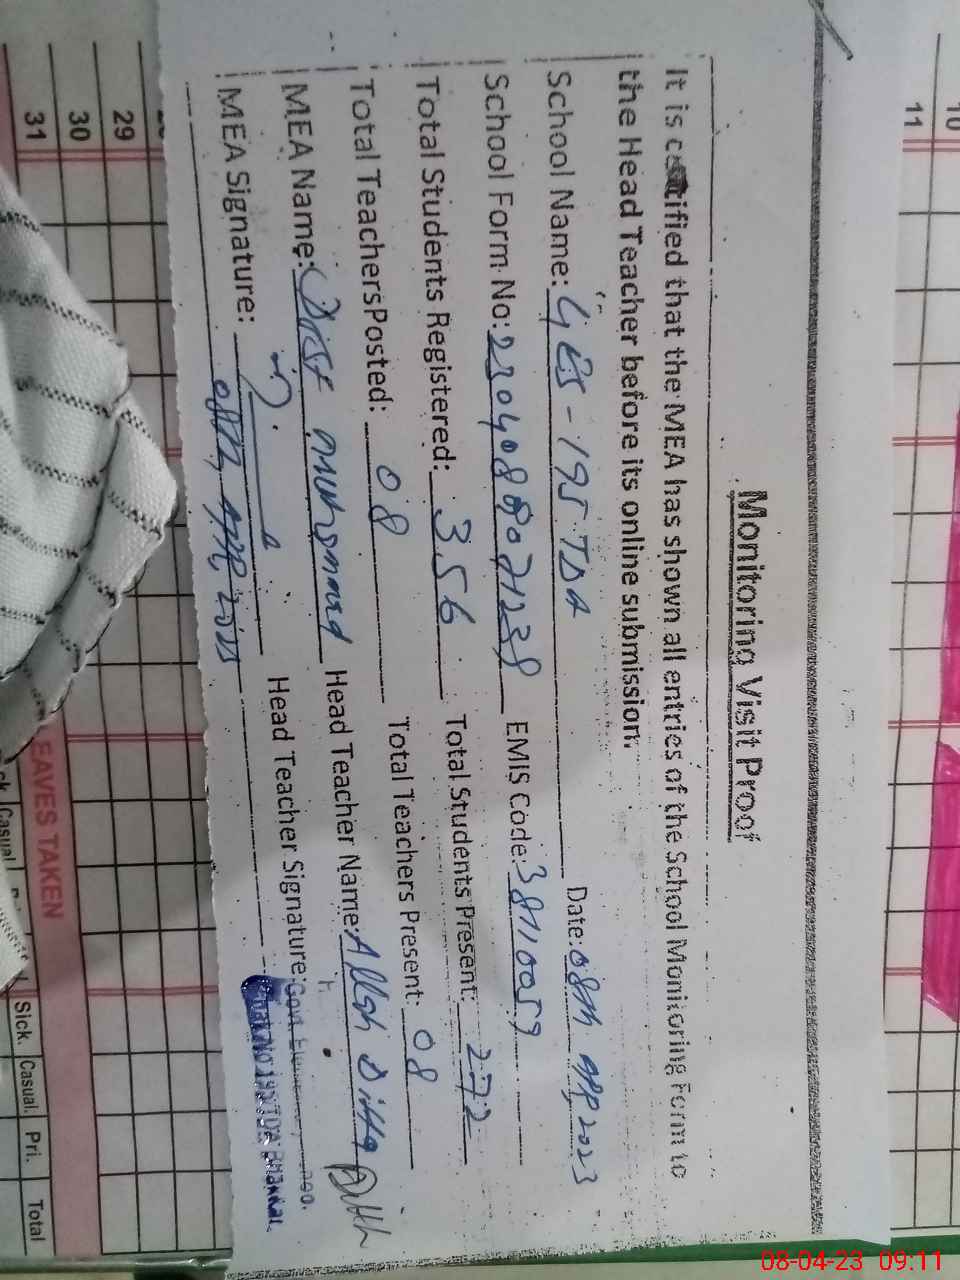 Monitoring Visit Proof
It is certified that the MEA has shown all entries of the School Monitoring Form to
the Head Teacher before its online submission.
School Name: GES-195 TDA Date: 08th APR 2023
School Form No: EMIS Code: 38110059
Total Students Registered: 356 Total Students Present: 272
Total Teachers Posted: 08 Total Teachers Present: 08
MEA Name: Dost Muhammad Head Teacher Name: Allah Ditta
MEA Signature: Head Teacher Signature:
08th APR 2023
Govt.
TDA Bhakkar
10
11
29
30
31
EAVES TAKEN
Casual
Sick. Casual. Pri. Total
08-04-23 09:11